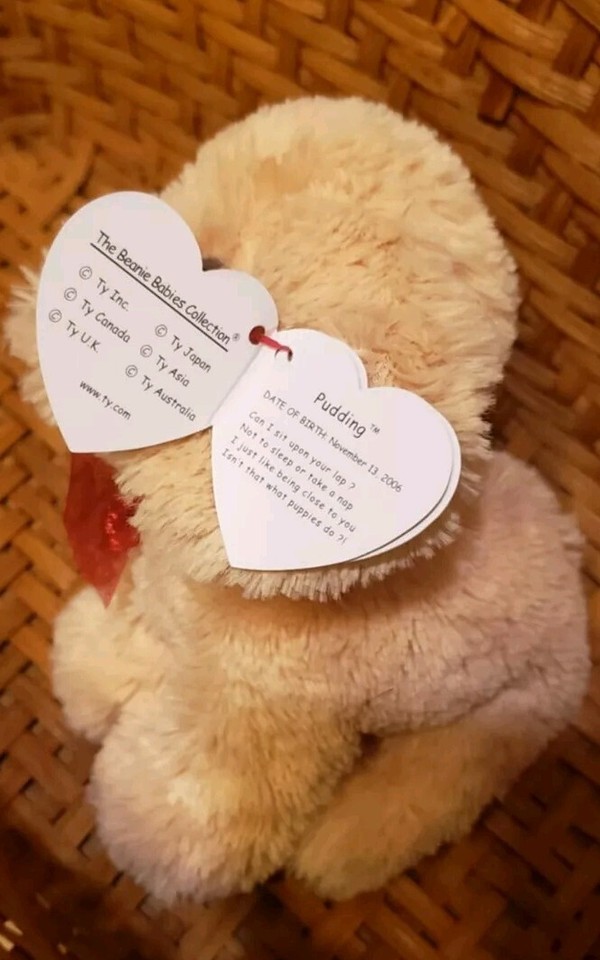 The Beanie Babies Collection®
© Ty Inc.
© Ty Canada
© Ty U.K.
© Ty Japan
© Ty Asia
© Ty Australia
www.ty.com
Pudding™
DATE OF BIRTH: November 13, 2006
Can I sit upon your lap ?
Not to sleep or take a nap
I just like being close to you
Isn't that what puppies do ?!